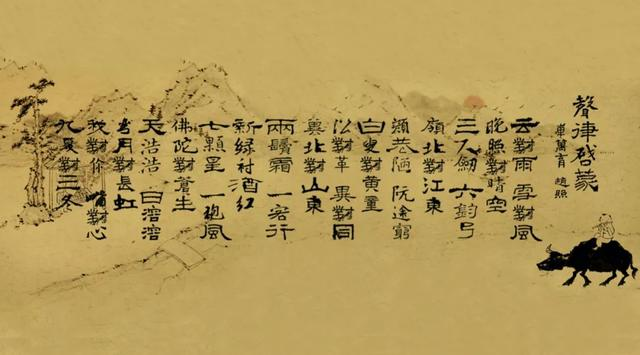 聲律啓蒙
車萬育 趙照
云對雨 雪對風
晚照對晴空
三尺劍 六鈞弓
嶺北對江東
顏巷陋 阮途窮
白叟對黃童
沿對革 異對同
冀北對山東
兩鬢霜 一客行
新綠衬酒紅
七顆星 一袍風
佛陀對蒼生
天浩浩 日溶溶
月對長虹
我對你 嘴對心
九夏對三冬